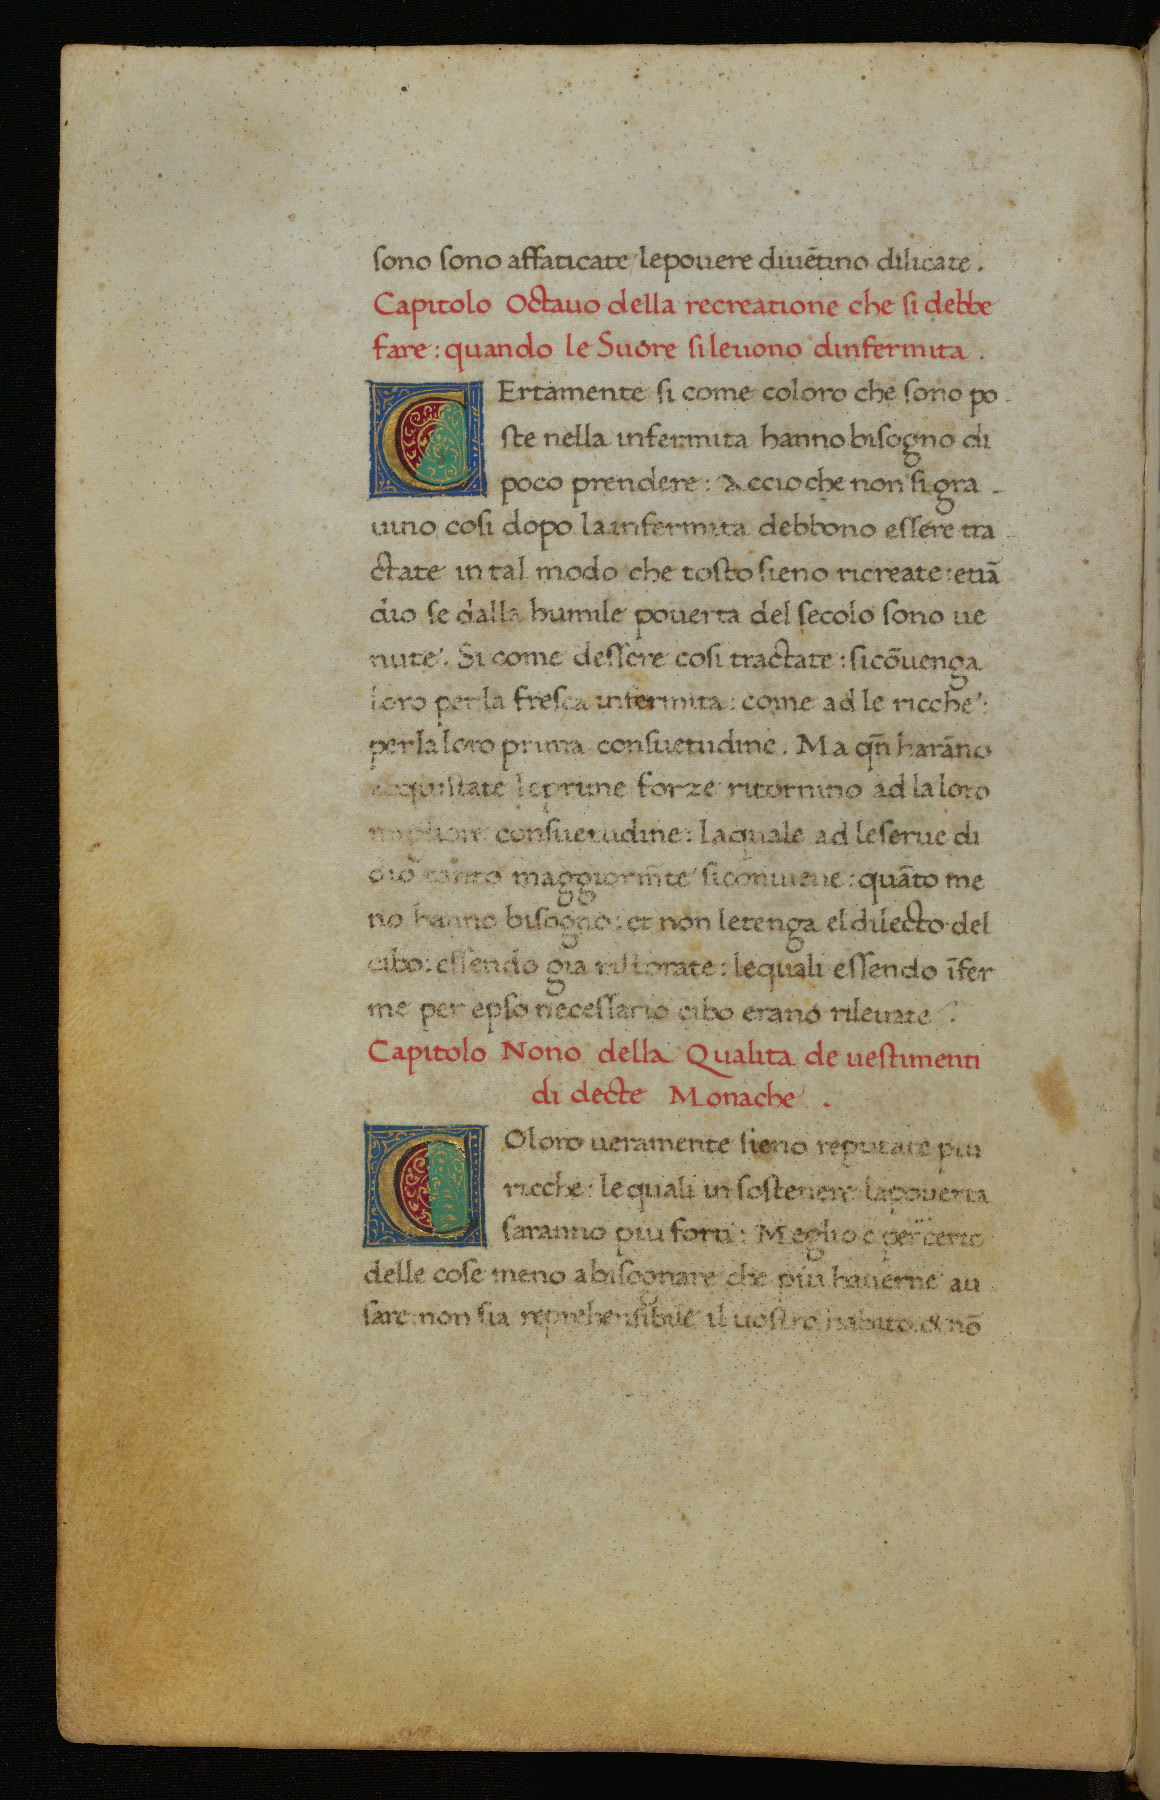 sono sono affaticate / le pouere diuētino dilicate .
Capitolo Octauo della recreatione che si debbe
fare : quando le Suore si leuono dinfermita .
CErtamente si come coloro che sono po
ste nella infermita hanno bisogno di
poco prendere : Accio che non si gra
uino, cosi dopo la infermita debbono essere tra
ctate in tal modo che tosto sieno ricreate : etiā
dio se dalla humile pouerta del secolo sono ue
nute . Si come dessere cosi tractate : si cōuenga
loro per la fresca infermita : come ad le ricche :
per la loro prima consuetudine . Ma qn̄ harāno
acquistate le prime forze ritornino ad la loro
migliore consuetudine : laquale ad le serue di
dio tanto maggiorm̄te si conuiene : quāto me
no hanno bisogno : et non le tenga el dilecto del
cibo : essendo gia ristorate : lequali essendo īfer
me per epso necessario cibo erano rileuate .
Capitolo Nono della Qualita de uestimenti
di decte Monache .
COloro ueramente sieno reputate piu
ricche : le quali in sostenere la pouerta
saranno piu forti : Meglio e per certo
delle cose meno abisognare che piu hauerne au
sare non sia reprehensibile il uostro habito & nō